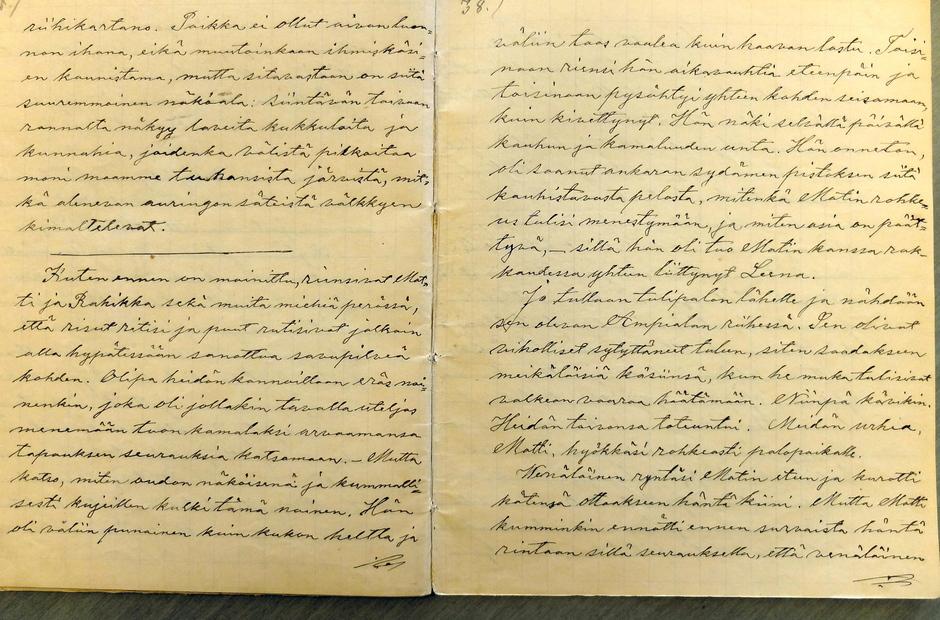 riihikartano. Paikka ei ollut aivan luon=
non ihana, eikä muutoinkaan ihmiskäsi=
en kaunistama, mutta sitävastaan on siitä
suuremmoinen näköala: siintävän taivaan
rannalta näkyy laveita kukkuloita ja
kunnahia, joidenka välistä pilkoitaa
moni maamme tuhansista järvistä, mit=
kä alenevan auringon säteistä välkkyen
kimaltelevat.
Kuten ennen on mainittu, riensivät Mat=
ti ja Rahikka sekä muita miehiä perässä,
että risut ritisi ja puut rutisivat jalkain
alla hypätessään sanottua savupilveä
kohden. Olipa heidän kannoillaan eräs nai=
nenkin, joka oli jollakin tavalla utelias
menemään tuon kamalaksi arvaamansa
tapauksen seurauksia katsomaan. — Mutta
katso, miten oudon näköisenä ja kummalli=
sesti kujeillen kulki tämä nainen. Hän
oli väliin punainen kuin kukon heltta ja
38.)
väliin taas vaalea kuin haavan lastu. Toisi=
naan riensi hän aikavauhtia eteenpäin ja
toisinaan pysähtyi yhteen kohden seisomaan,
kuin kivettynyt. Hän näki selvällä päivällä
kauhun ja kamaluuden unta. Hän onneton,
oli saanut ankaran sydämen pistoksen siitä
kauhistavasta pelosta, mitenkä Matin rohke=
us tulisi menestymään, ja miten asia on päät=
tyvä, — sillä hän oli tuo Matin kanssa rak=
kaudessa yhteen liittynyt Leena.
Jo tullaan tulipalon lähelle ja nähdään
sen olevan Ampialan riihessä. Sen olivat
viholliset sytyttäneet tuleen, siten saadakseen
meikäläisiä käsiinsä, kun he muka tulisivat
valkean vaaraa häätämään. Niinpä kävikin.
Heidän toivonsa toteuntui. Meidän urhea,
Matti, hyökkäsi rohkeasti palopaikalle.
Wenäläinen ryntäsi Matin eteen ja kurotti
kätensä ottaakseen häntä kiini. Mutta Matti
kumminkin ennätti ennen survaista häntä
rintaan sillä seurauksella, että venäläinen